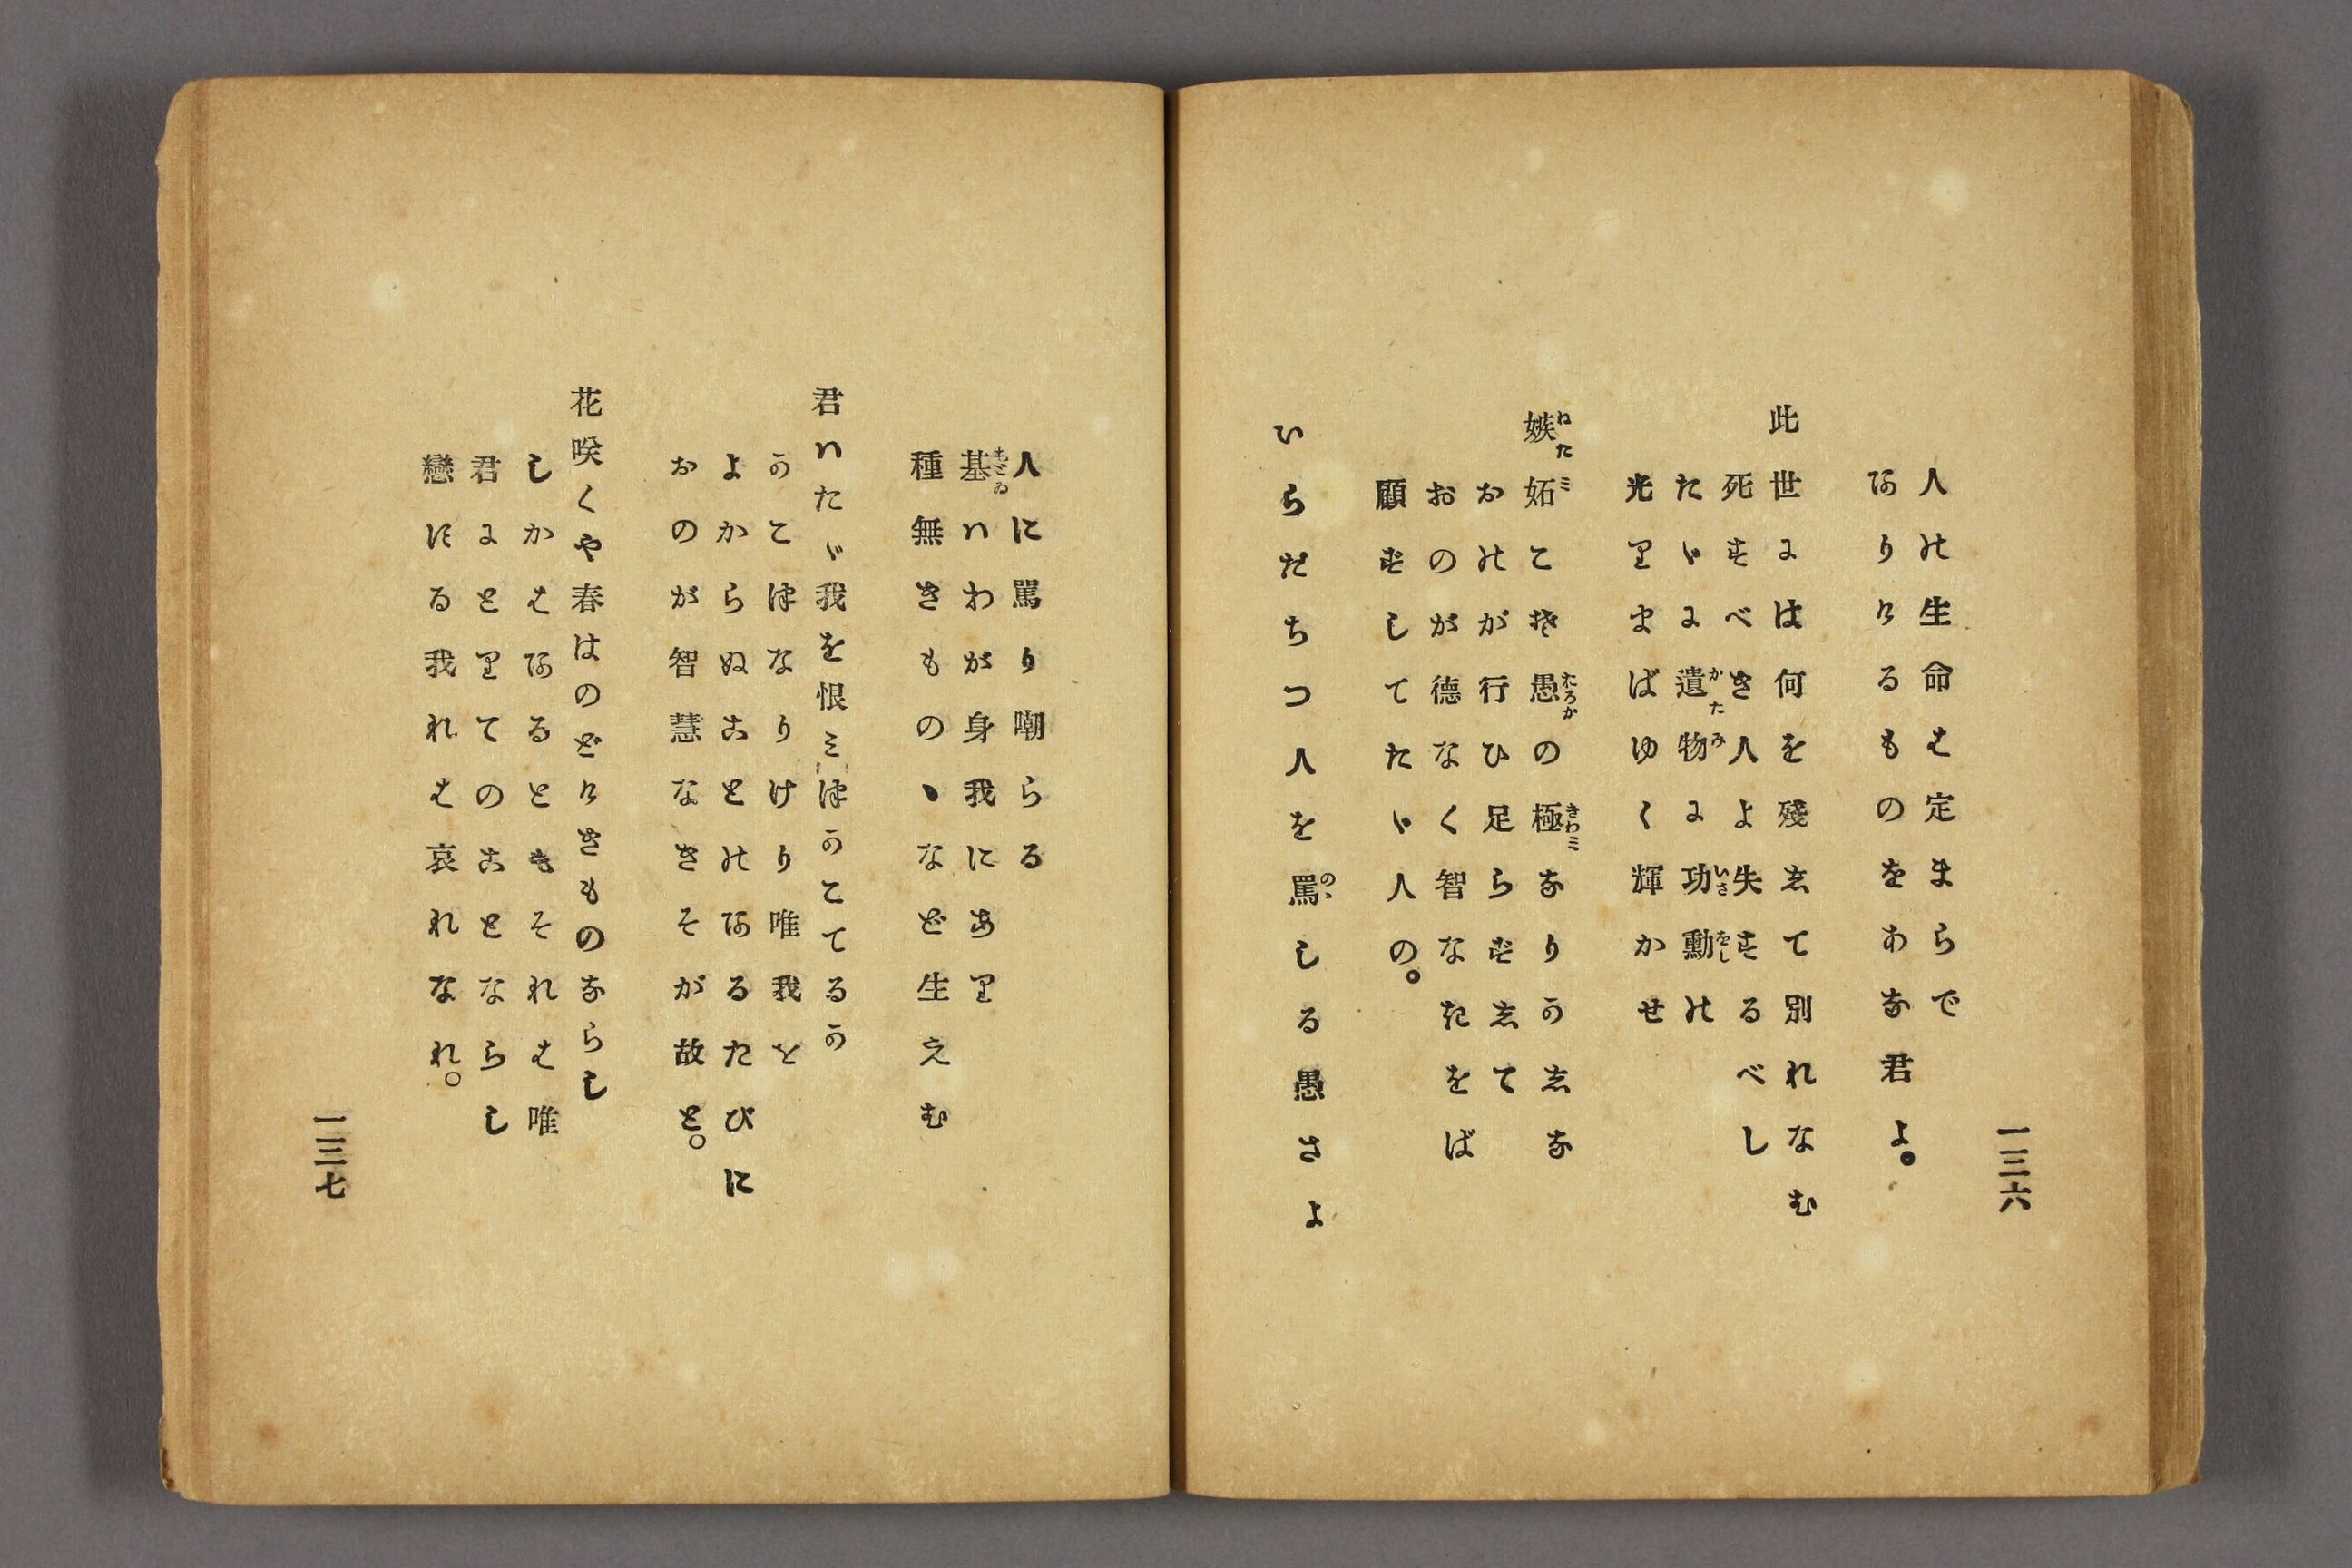 一三六
人の生命は定まらで
ありけるものをあな君よ。
此世には何を殘して別れなむ
死すべき人よ失するべし
たゞに遺物に功勳の
光りまばゆく輝かせ
嫉妬こそ愚の極なりかしな
おのが行ひ足らずして
おのが德なく智なきをば
顧ずしてたゞ人の。
いらだちつ人を罵しる愚さよ
人に罵り嘲らる
基ハわが身我にあり
種無きものゝなど生えむ
君ハたゞ我を恨ミつかこてるか
かこつなりけり唯我を
よからぬことのあるたびに
おのが智慧なきそが故と。
花咲くや春はのどけきものならし
しかはあるともそれは唯
君にとりてのことならし
戀する我れは哀れなれ。
一三七